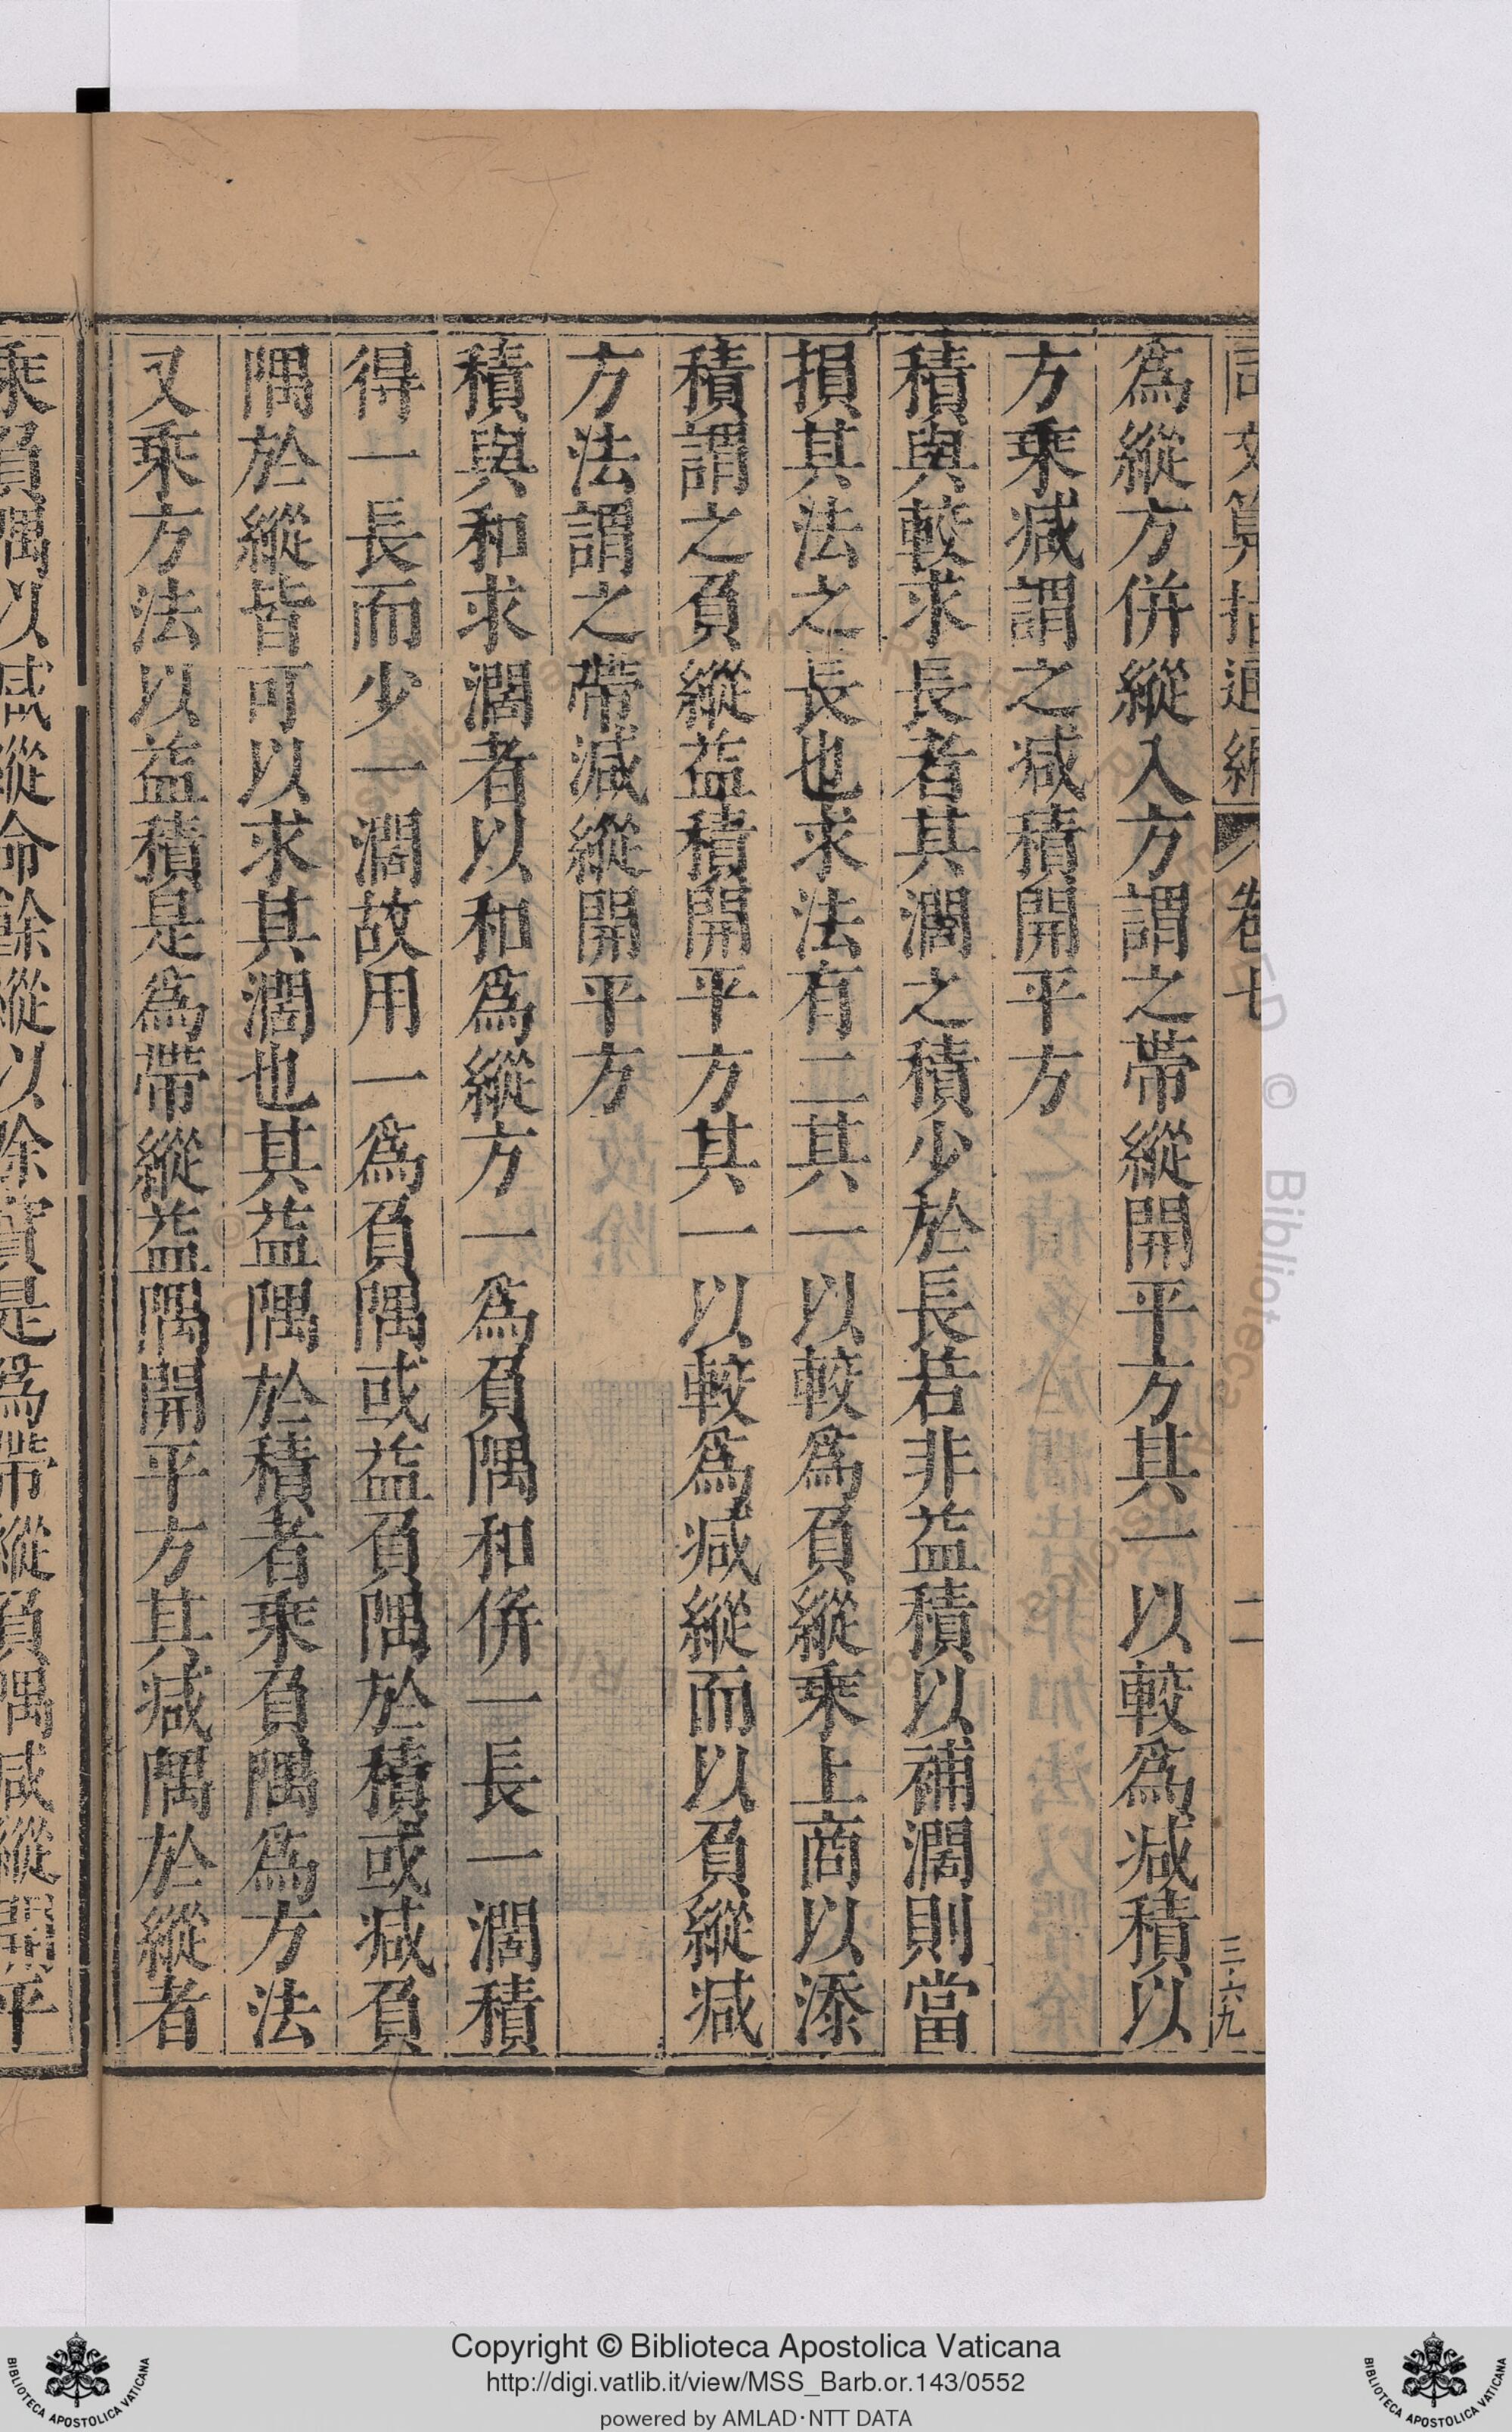 同文算指通編 卷七 二 三六九
爲縱方併縱入方謂之帶縱開平方其一以較爲减積以
方乘减謂之减積開平方
積與較求長者其濶之積少於長若非益積以補濶則當
損其法之長也求法有二其一以較爲負縱乘上商以添
積謂之負縱益積開平方其一以較爲减縱而以負縱减
方法謂之帶减縱開平方
積與和求濶者以和爲縱方一爲負隅和併一長一濶積
得一長而少一濶故用一爲負隅或益負隅於積或减負
隅於縱皆可以求其濶也其益隅於積者乘負隅爲方法
又乘方法以益積是爲帶縱益隅開平方其减隅於縱者
乘負隅以减縱命餘縱以除實是爲帶縱負隅减縱開平
Copyright © Biblioteca Apostolica Vaticana
http://digi.vatlib.it/view/MSS_Barb.or.143/0552
powered by AMLAD·NTT DATA
BIBLIOTECA APOSTOLICA VATICANA
BIBLIOTECA APOSTOLICA VATICANA